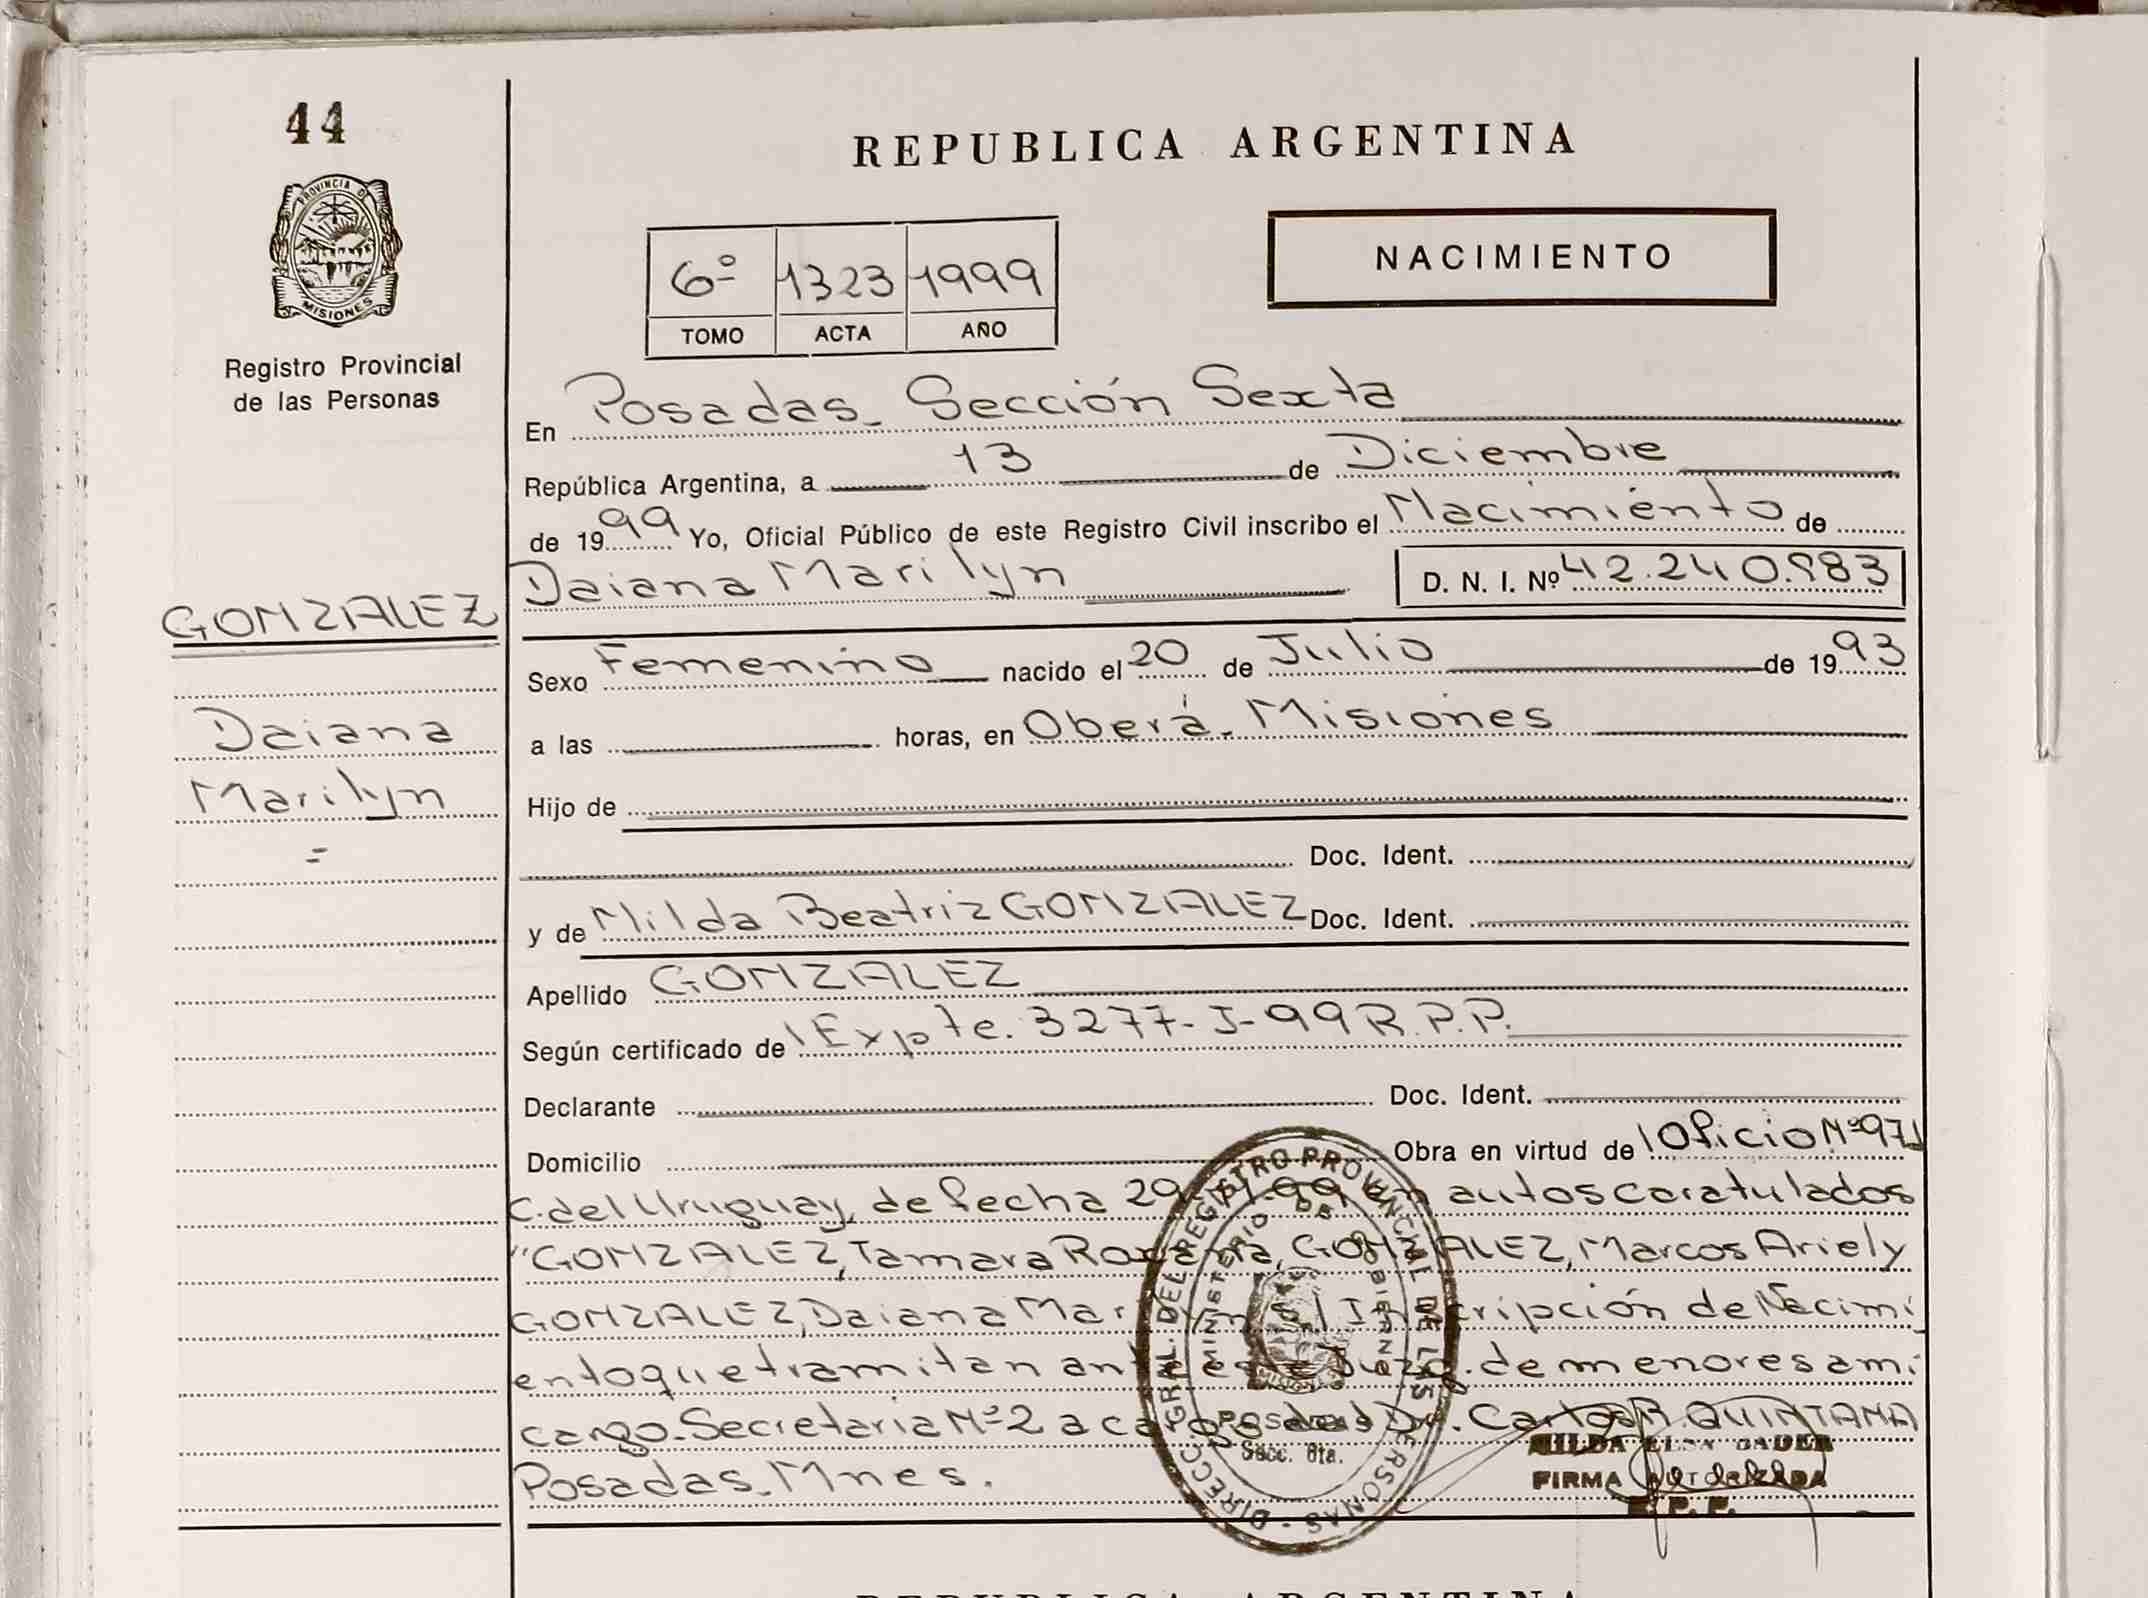 44
REPUBLICA ARGENTINA
PROVINCIA DE
MISIONES
Registro Provincial
de las Personas
6º 1323 1999
TOMO ACTA AÑO
NACIMIENTO
En Posadas - Sección Sexta
República Argentina, a 13 de Diciembre
de 1999 Yo, Oficial Público de este Registro Civil inscribo el Nacimiento de
Daiana Marilyn D. N. I. Nº 42.240.983
GONZALEZ
Daiana
Marilyn
=
Sexo Femenino nacido el 20 de Julio de 1993
a las horas, en Oberá - Misiones
Hijo de
Doc. Ident.
y de Nilda Beatriz GONZALEZ Doc. Ident.
Apellido GONZALEZ
Según certificado de Expte. 3277-J-99 R.P.P.
Declarante Doc. Ident.
Domicilio Obra en virtud de Oficio Nº 971
C. del Uruguay, de fecha 29 99 en autos caratulados
"GONZALEZ, Tamara Roxana, GONZALEZ, Marcos Ariel y
GONZALEZ, Daiana Marilyn s/ Inscripción de Nacimi
ento que tramitan ante este Juzg. de menores a mi
cargo. Secretaria Nº 2 a cargo del Dr. Carlos R. QUINTANA
Posadas. Mnes.
DIRECC. GRAL. DEL REGISTRO PROVINCIAL DE LAS PERSONAS
MINISTERIO DE GOBIERNO
MISIONES
POSADAS
Secc. 6ta.
NILDA ELSA BADER
FIRMA
R. P. P.
REPUBLICA ARGENTINA